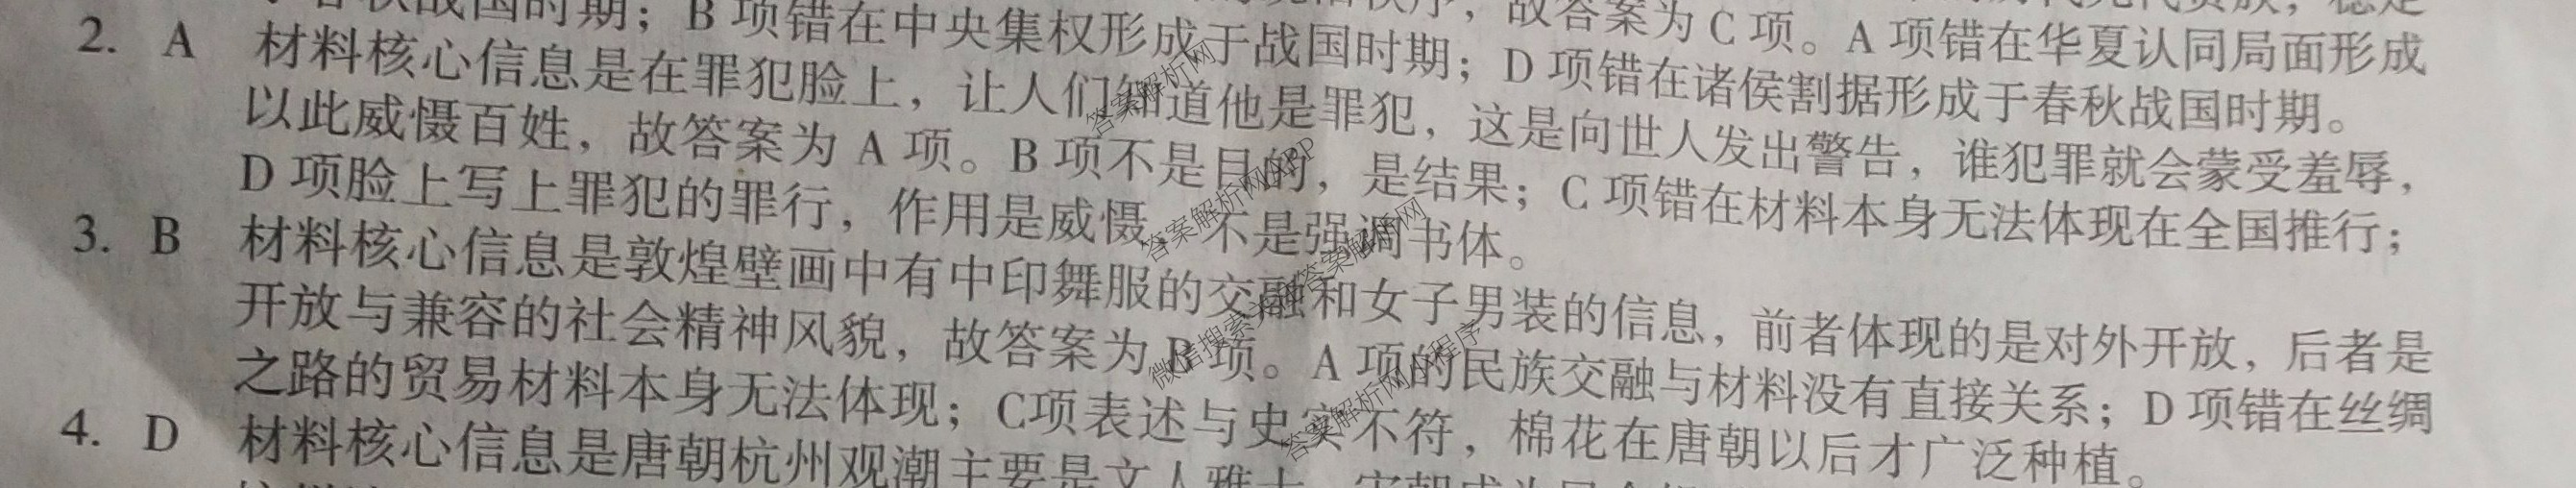 春秋战国时期；B 项错在中央集权形成于战国时期；D 项错在诸侯割据形成于春秋战国时期。
故答案为 C 项。A 项错在华夏认同局面形成
2. A 材料核心信息是在罪犯脸上，让人们知道他是罪犯，这是向世人发出警告，谁犯罪就会蒙受羞辱，
以此威慑百姓，故答案为 A 项。B 项不是目的，是结果；C 项错在材料本身无法体现在全国推行；
D 项脸上写上罪犯的罪行，作用是威慑，不是强调书体。
3. B 材料核心信息是敦煌壁画中有中印舞服的交融和女子男装的信息，前者体现的是对外开放，后者是
开放与兼容的社会精神风貌，故答案为 B 项。A 项的民族交融与材料没有直接关系；D 项错在丝绸
之路的贸易材料本身无法体现；C项表述与史实不符，棉花在唐朝以后才广泛种植。
4. D 材料核心信息是唐朝杭州观潮主要是文人雅士
答案解析网
答案解析网APP
微信搜索
答案解析网
小程序
答案解析网